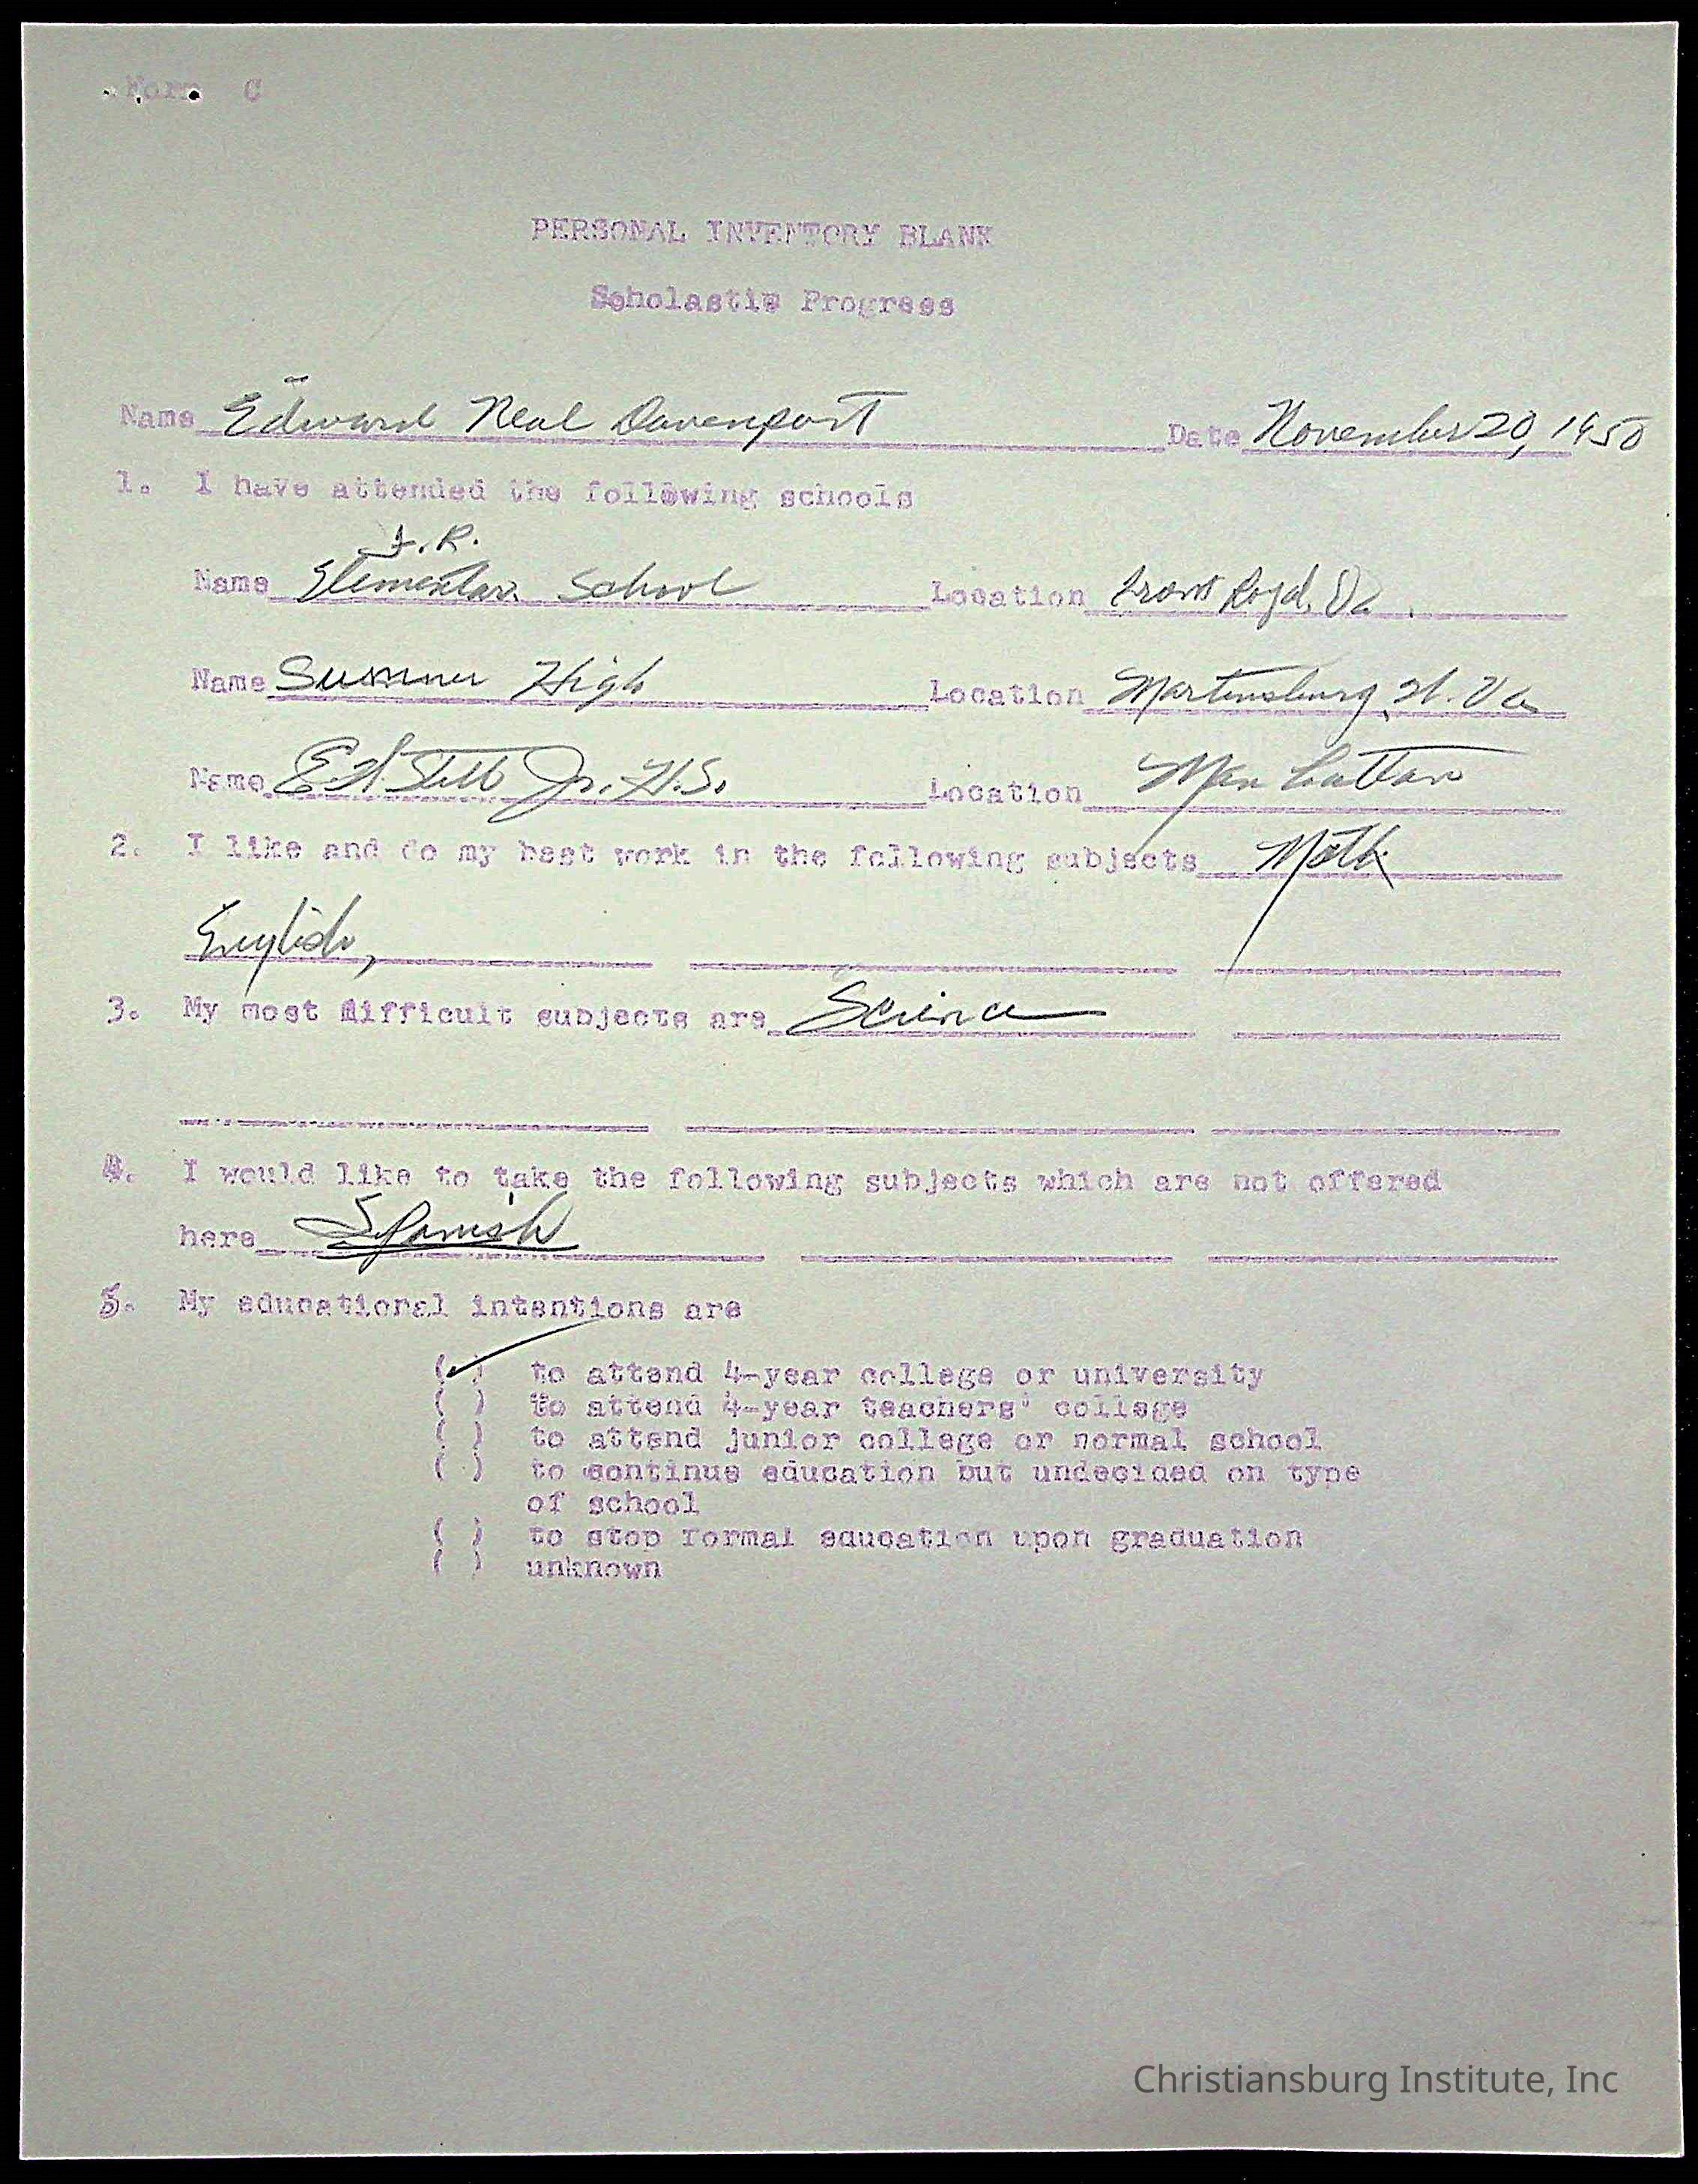 Form C
PERSONAL INVENTORY BLANK
Scholastic Progress
Name Edward Neal Davenport Date November 20, 1950
1. I have attended the following schools
F. R.
Name Elementary School Location Front Royal, Va.
Name Sumner High Location Martinsburg, W. Va
Name Jr. H.S. Location Manhattan
2. I like and do my best work in the following subjects Math
English,
3. My most difficult subjects are Science
4. I would like to take the following subjects which are not offered
here Spanish
5. My educational intentions are
(✓) to attend 4-year college or university
( ) to attend 4-year teachers' college
( ) to attend junior college or normal school
( ) to continue education but undecided on type
of school
( ) to stop formal education upon graduation
( ) unknown
Christiansburg Institute, Inc